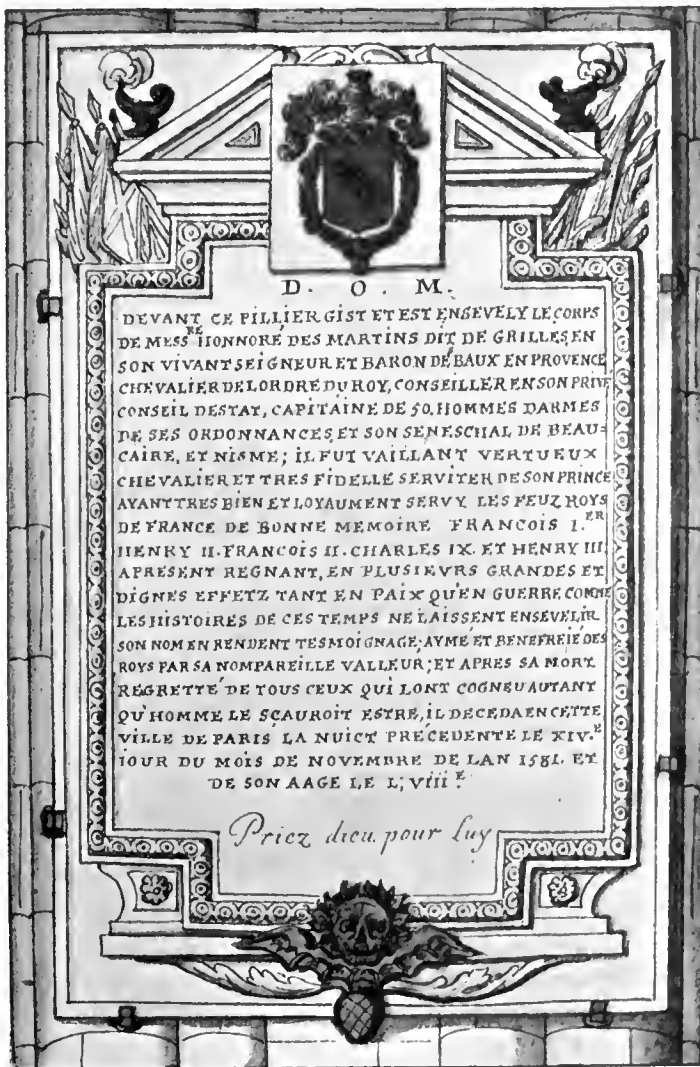 D. O. M.
DEVANT CE PILLIER GIST ET EST ENSEVELY LE CORPS
DE MESS.RE HONNORÉ DES MARTINS DIT DE GRILLES, EN
SON VIVANT SEIGNEUR ET BARON DE BAUX EN PROVENCE,
CHEVALIER DE LORDRE DU ROY, CONSEILLER EN SON PRIVÉ
CONSEIL DESTAT, CAPITAINE DE 50. HOMMES DARMES
DE SES ORDONNANCES, ET SON SENESCHAL DE BEAU-
CAIRE, ET NISME; IL FUT VAILLANT VERTUEUX
CHEVALIER ET TRES FIDELLE SERVITER DE SON PRINCE
AYANT TRES BIEN ET LOYAUMENT SERVY LES FEUZ ROYS
DE FRANCE DE BONNE MEMOIRE FRANCOIS I.ER
HENRY II. FRANCOIS II. CHARLES IX. ET HENRY III.
APRESENT REGNANT, EN PLUSIEVRS GRANDES ET
DIGNES EFFETZ TANT EN PAIX QU'EN GUERRE COMME
LES HISTOIRES DE CES TEMPS NE LAISSENT ENSEVELIR
SON NOM EN RENDENT TESMOIGNAGE; AYMÉ ET BENEFREIÉ DES
ROYS PAR SA NOMPAREILLE VALLEUR; ET APRES SA MORT
REGRETTÉ DE TOUS CEUX QUI LONT COGNEU AUTANT
QU'HOMME LE SÇAUROIT ESTRE, IL DECEDA EN CETTE
VILLE DE PARIS LA NUICT PRECEDENTE LE XIV.E
IOUR DU MOIS DE NOVEMBRE DE LAN 1581. ET
DE SON AAGE LE L; VIII.E
Priez dieu pour luy